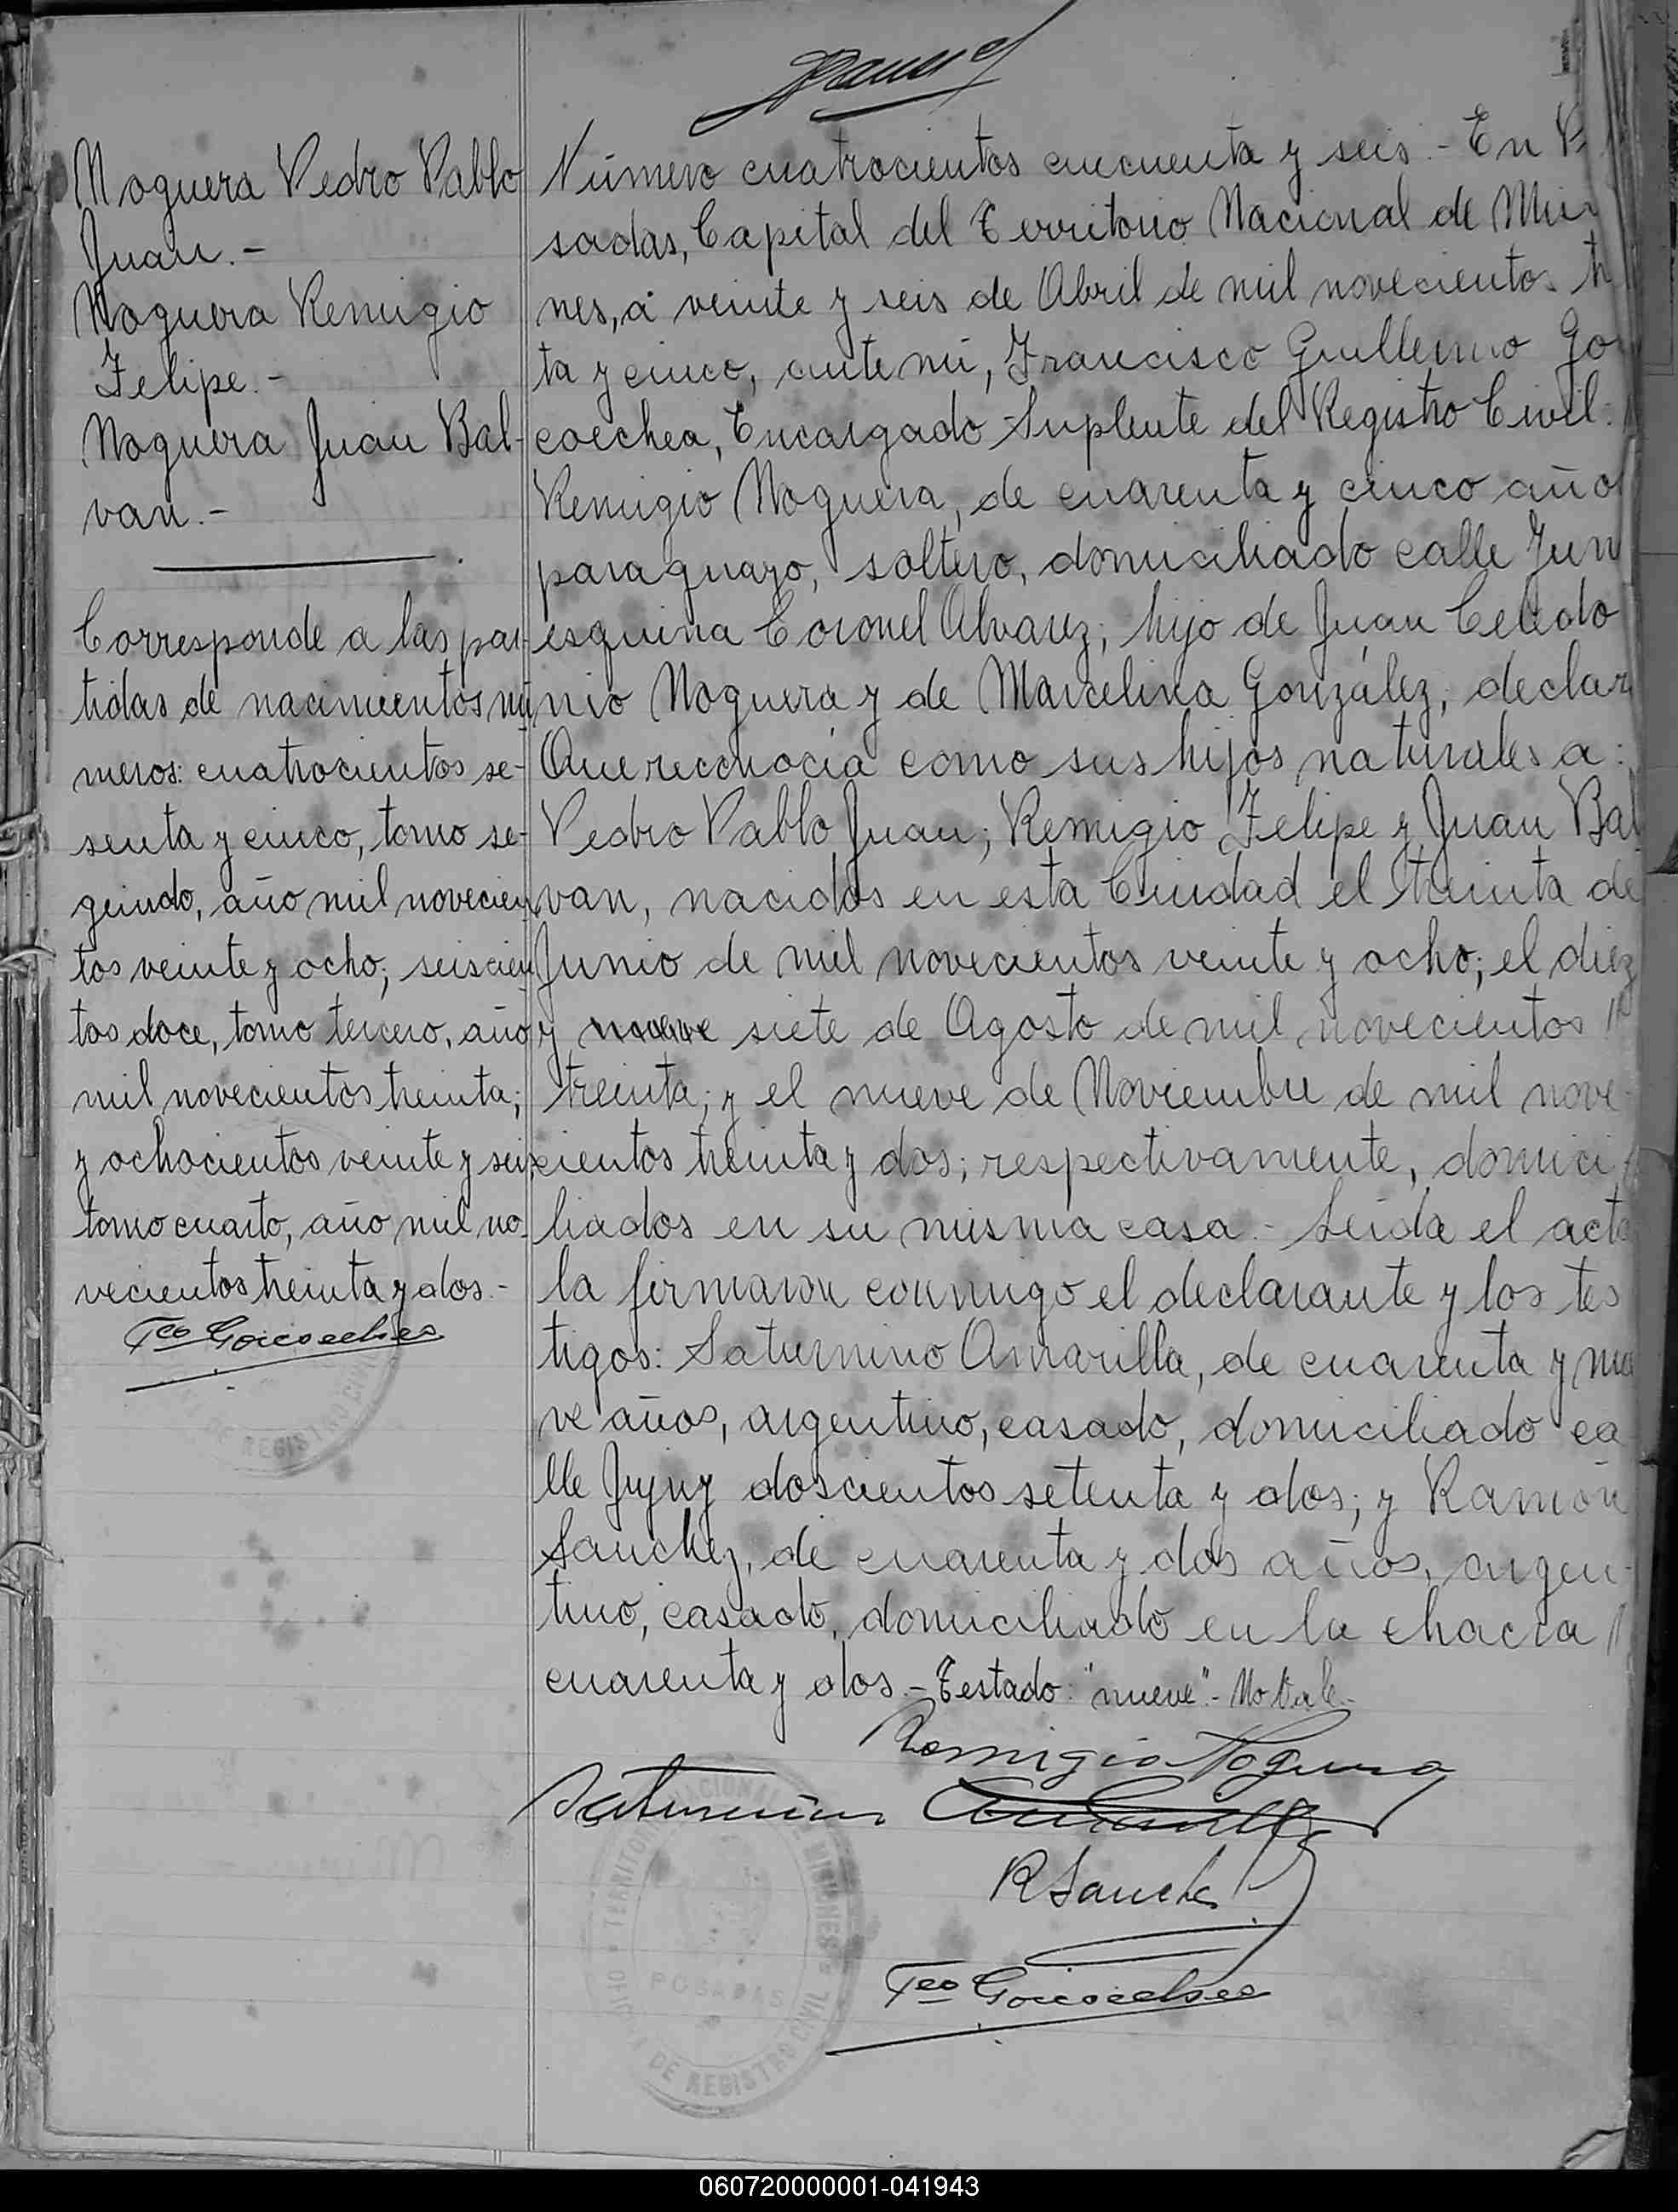 Noguera Pedro Pablo
Juan.-
Noguera Remigio
Felipe.-
Noguera Juan Bal-
van.-
Corresponde a las par-
tidas de nacimientos nú
meros: cuatrocientos se-
senta y cinco, tomo se-
gundo, año mil novecien
tos veinte y ocho; seiscien
tos doce, tomo tercero, año
mil novecientos treinta;
y ochocientos veinte y seis,
tomo cuarto, año mil no-
vecientos treinta y dos.-
Fco Goicoechea
DE REGISTRO CIVIL
Número cuatrocientos cincuenta y seis.- En P
sadas, Capital del Territorio Nacional de Misi
nes, a veinte y seis de Abril de mil novecientos
ta y cinco, ante mí, Francisco Guillermo Go
coechea, Encargado Suplente del Registro Civil:
Remigio Noguera, de cuarenta y cinco año
paraguayo, soltero, domiciliado calle Jun
esquina Coronel Alvarez, hijo de Juan Celedo
nio Noguera y de Marcelina González, declar
Que reconocía como sus hijos naturales a:
Pedro Pablo Juan; Remigio Felipe y Juan Bal
van, nacidos en esta Ciudad el treinta de
Junio de mil novecientos veinte y ocho; el diez
y nueve siete de Agosto de mil novecientos
treinta; y el nueve de Noviembre de mil nove-
cientos treinta y dos; respectivamente, domici
liados en su misma casa.- Leída el acta
la firmaron conmigo el declarante y los tes
tigos: Saturnino Amarilla, de cuarenta y nue
ve años, argentino, casado, domiciliado ca
lle Jujuy doscientos setenta y dos; y Ramón
Sanchez, de cuarenta y dos años, argen-
tino, casado, domiciliado en la chacra
cuarenta y dos.- Testado: "nueve".- No Vale.-
Remigio Noguera
Saturnino Amarilla
R Sanche
Fco Goicoechea
TERRITORIO NACIONAL DE MISIONES
POSADAS
DE REGISTRO CIVIL
060720000001-041943